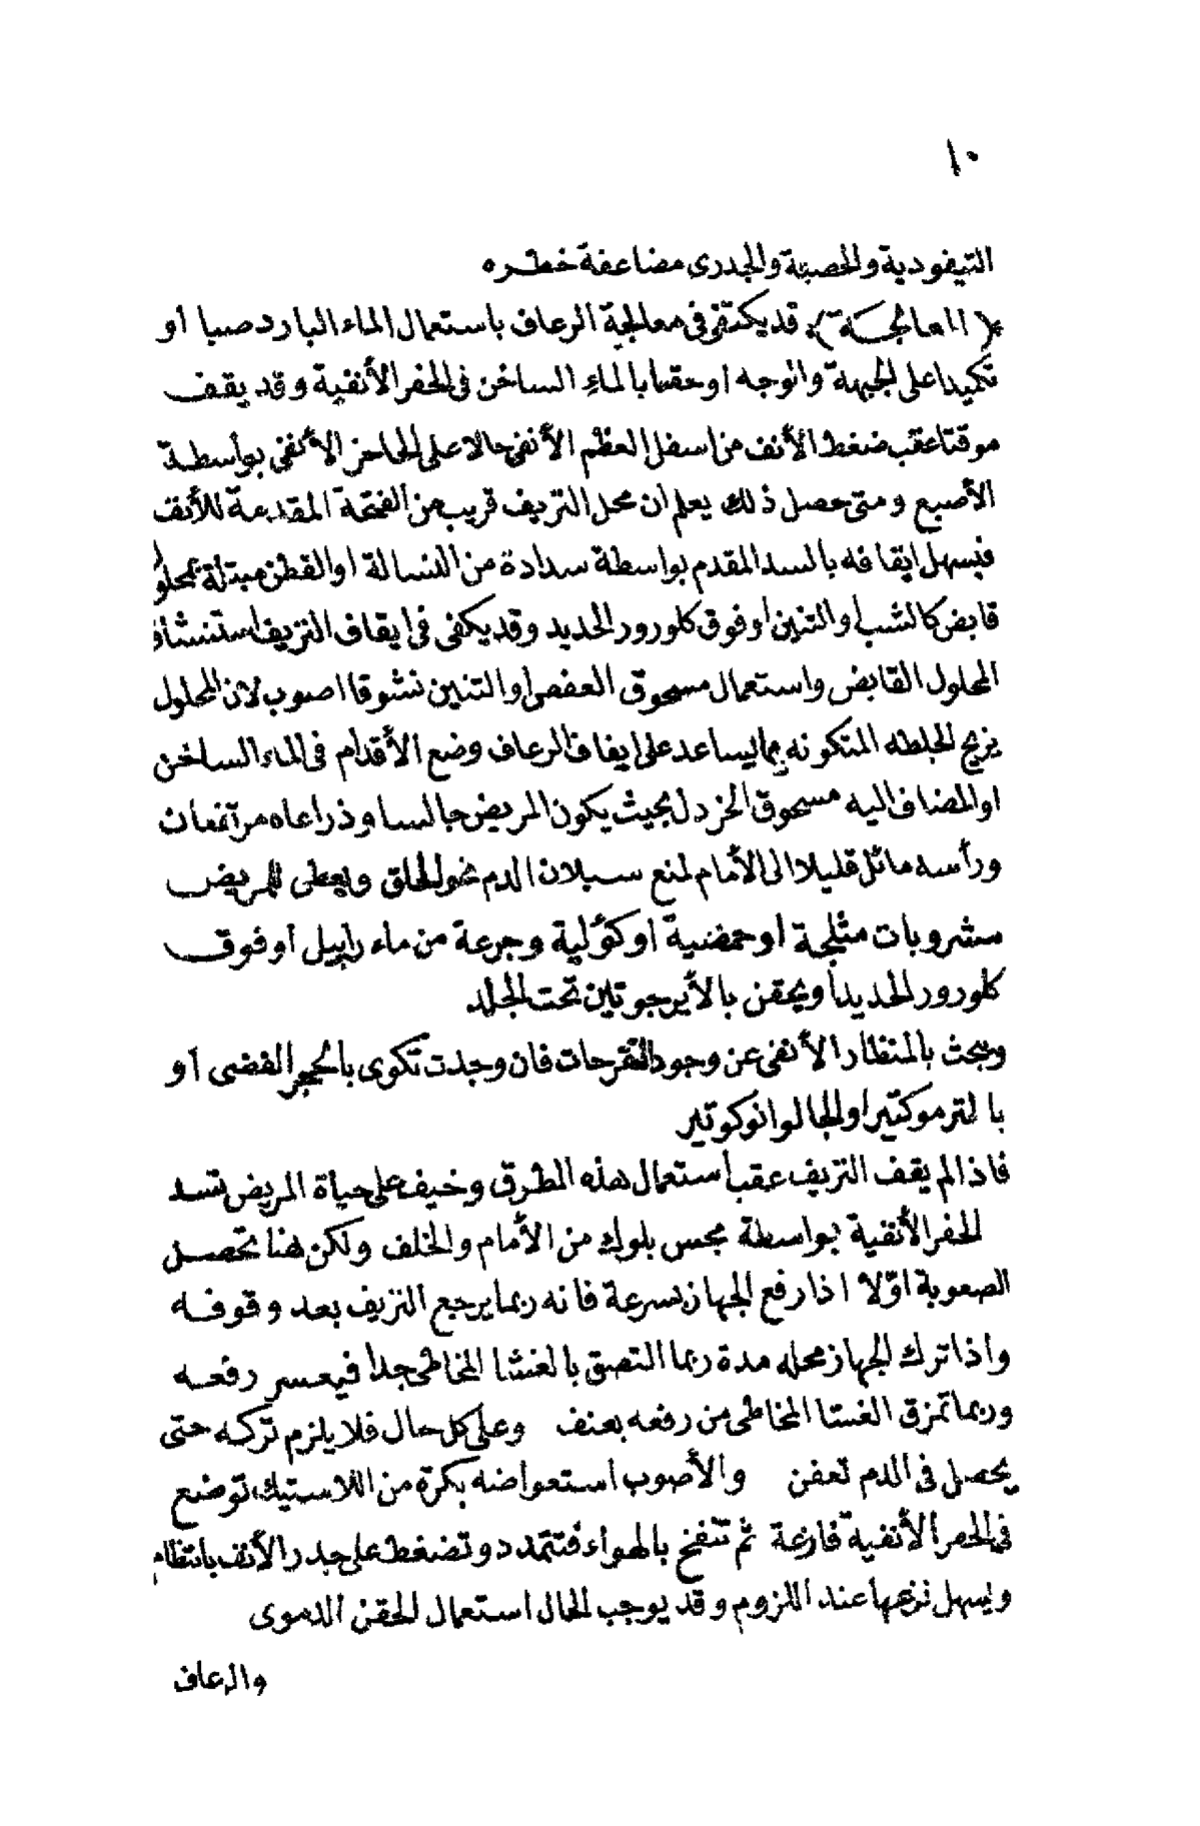 ١٠
التيفودية والحصبة والجدرى مضاعفة خطره
﴿ المعالجة ﴾ قد يكتفى فى معالجة الرعاف باستعمال الماء البارد صبا أو
تكميدا على الجبهة والوجه أو حقنا بالماء الساخن فى الحفر الأنفية وقد يقف
موقتا عقب ضغط الأنف من اسفل العظم الأنفى حالا على الحاجز الأنفى بواسطة
الأصبع ومتى حصل ذلك يعلم ان محل النزيف قريب من الفتحة المقدمة للأنف
فيسهل ايقافه بالسد المقدم بواسطة سدادة من النسالة او القطن مبتلة بمحلول
قابض كالشب او التنين او فوق كلورور الحديد وقد يكفى فى ايقاف النزيف استنشاق
المحلول القابض واستعمال مسحوق العفص او التنين نشوقا اصوب لان المحلول
يزيح الجلطه المتكونه مما يساعد على ايقاف الرعاف وضع الأقدام فى الماء الساخن
او المضاف اليه مسحوق الخردل بحيث يكون المريض جالسا وذراعاه مرتفعان
ورأسه مائل قليلا الى الأمام لمنع سيلان الدم نحو الحلق ويعطى للمريض
مشروبات مثلجة او حمضية او كؤلية وجرعة من ماء رابيل أو فوق
كلورور الحديد أو يحقن بالأيرجوتين تحت الجلد
ويبحث بالمنظار الأنفى عن وجود التقرحات فان وجدت تكوى بالحجر الفضى أو
بالترموكتير او الجالوانوكوتير
فاذا لم يقف النزيف عقب استعمال هذه الطرق وخيف على حياة المريض تسد
الحفر الأنفية بواسطة مجس بلوك من الأمام والخلف ولكن هنا تحصل
الصعوبة اوّلا اذا رفع الجهاز بسرعة فانه ربما يرجع النزيف بعد وقوفه
واذا ترك الجهاز محله مدة ربما التصق بالغشا المخاطى جدا فيعسر رفعه
وربما تمزق الغشا المخاطى من رفعه بعنف وعلى كل حال فلا يلزم تركه حتى
يحصل فى الدم تعفن والأصوب استعواضه بكرة من اللاستيك توضع
فى الحفر الأنفية فارغة ثم تنفخ بالهواء فتتمدد وتضغط على جدر الأنف بانتظام
ويسهل نزعها عند اللزوم وقد يوجب الحال استعمال الحقن الدموى
والرعاف